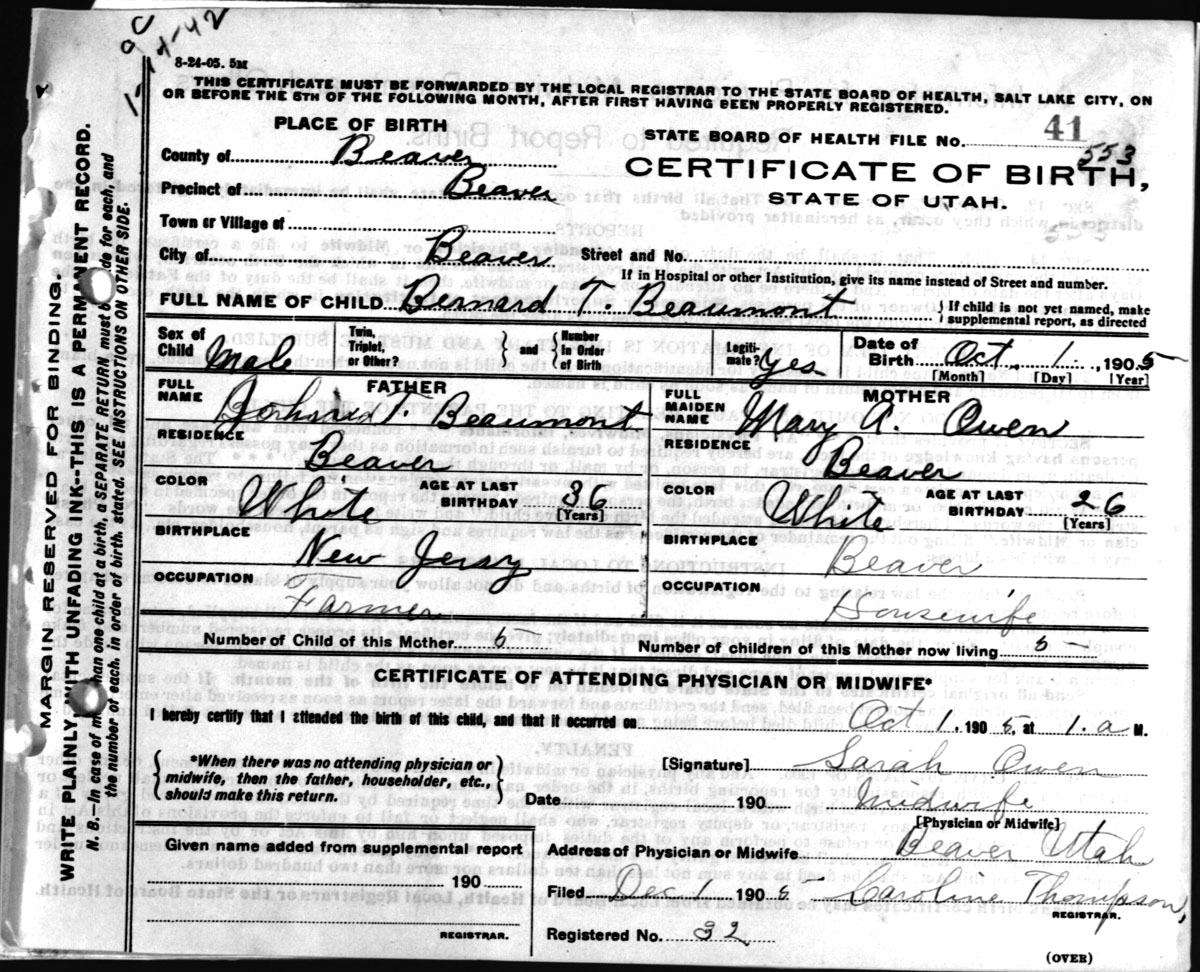 1-14-42
8-24-05. 5M
THIS CERTIFICATE MUST BE FORWARDED BY THE LOCAL REGISTRAR TO THE STATE BOARD OF HEALTH, SALT LAKE CITY, ON
OR BEFORE THE 5TH OF THE FOLLOWING MONTH, AFTER FIRST HAVING BEEN PROPERLY REGISTERED.
PLACE OF BIRTH
STATE BOARD OF HEALTH FILE No. 41
553
County of Beaver
CERTIFICATE OF BIRTH,
Precinct of Beaver
STATE OF UTAH.
Town or Village of
City of Beaver Street and No.
If in Hospital or other institution, give its name instead of Street and number.
FULL NAME OF CHILD Bernard T. Beaumont { If child is not yet named, make supplemental report, as directed
Sex of Child Male Twin, Triplet, or Other? { and } Number in Order of Birth Legiti- mate? Yes Date of Birth Oct. 1, 1905
[Month] [Day] [Year]
FATHER
FULL NAME T. Beaumont
MOTHER
FULL MAIDEN NAME Mary A. Owen
RESIDENCE Beaver
RESIDENCE Beaver
COLOR White AGE AT LAST BIRTHDAY 36 [Years]
COLOR White AGE AT LAST BIRTHDAY 26 [Years]
BIRTHPLACE New Jersy
BIRTHPLACE Beaver
OCCUPATION Farmer
OCCUPATION Housewife
Number of Child of this Mother 5 Number of children of this Mother now living 5
CERTIFICATE OF ATTENDING PHYSICIAN OR MIDWIFE*
I hereby certify that I attended the birth of this child, and that it occurred on Oct 1, 1905, at 1. a M.
{ *When there was no attending physician or midwife, then the father, householder, etc., should make this return. }
[Signature] Sarah Owen
Date 190 Midwife
[Physician or Midwife]
Given name added from supplemental report
190
REGISTRAR.
Address of Physician or Midwife Beaver Utah
Filed Dec 1 1905 Caroline Thompson,
REGISTRAR.
Registered No. 32
(OVER)
MARGIN RESERVED FOR BINDING.
WRITE PLAINLY, WITH UNFADING INK--THIS IS A PERMANENT RECORD.
N. B.--In case of more than one child at a birth, a SEPARATE RETURN must be made for each, and
the number of each, in order of birth stated. SEE INSTRUCTIONS ON OTHER SIDE.